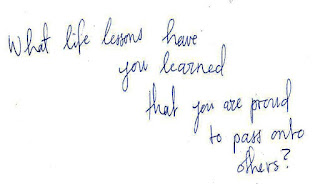 What life lessons have
you learned
that you are proud
to pass onto
others?